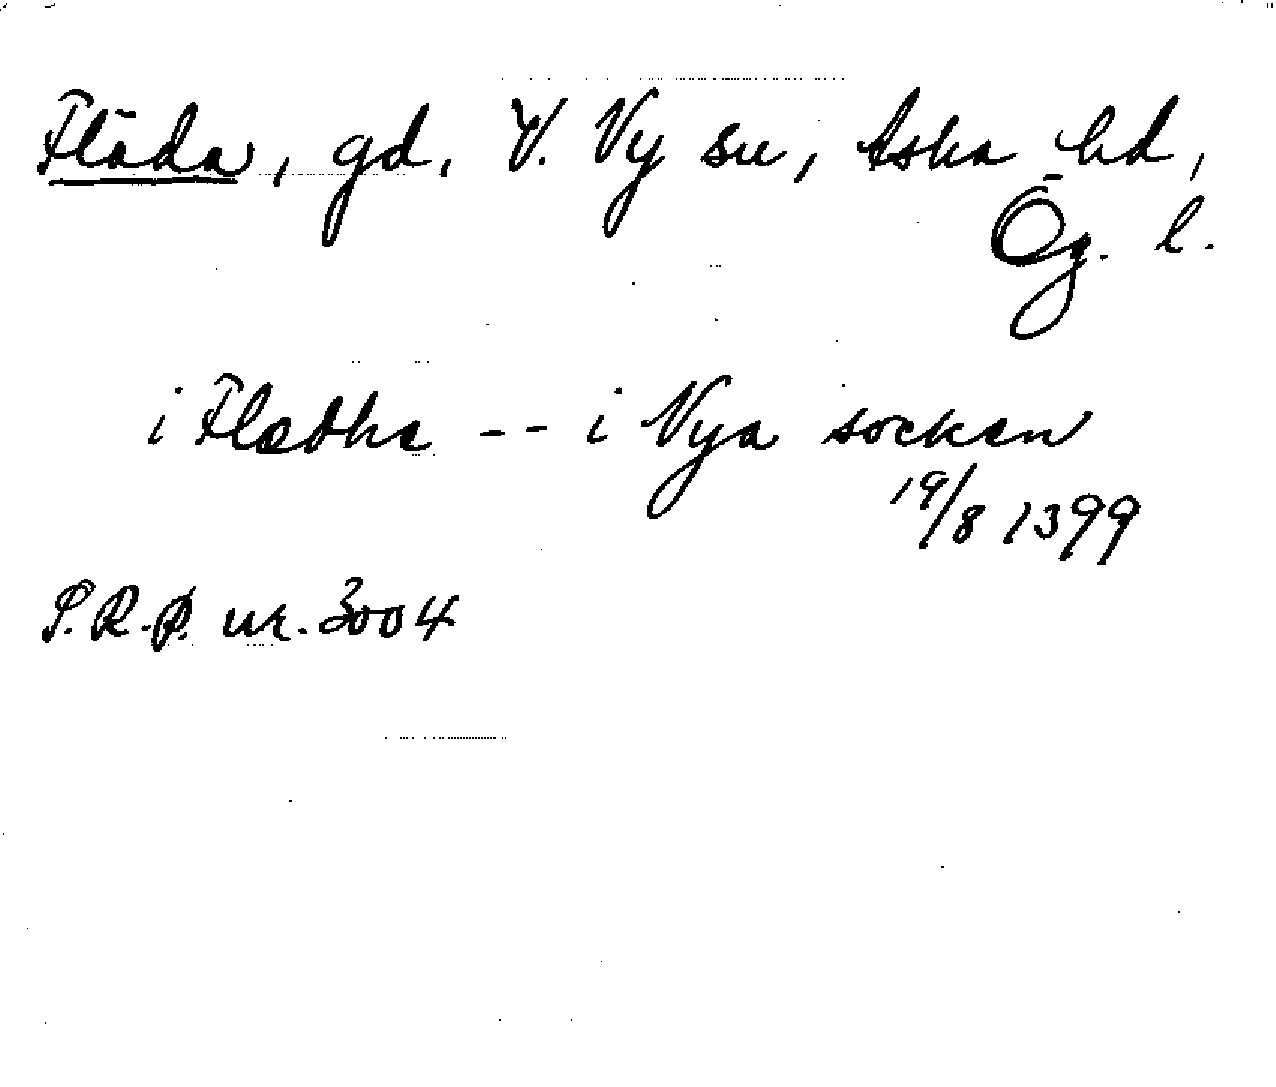 Fläda, gd, V. Ny sn, Aska hd,
Ög. l.
i Flædha -- i Nya socken
19/8 1399
S.R.P. nr. 3004